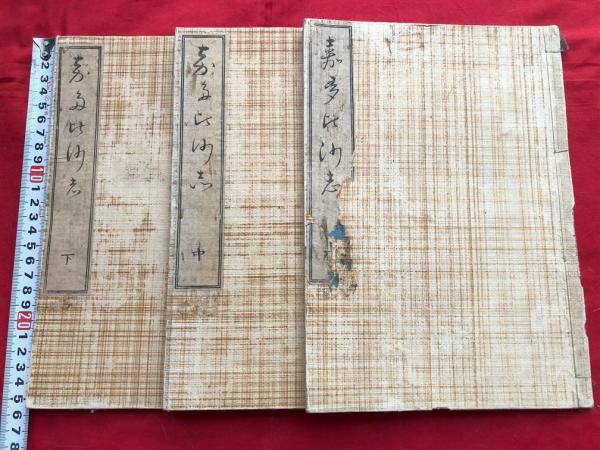 嘉多比沙志
嘉多比沙志
中
嘉多比沙志
下
2 3 4 5 6 7 8 9 10 1 2 3 4 5 6 7 8 9 20 1 2 3 4 5 6 7 8